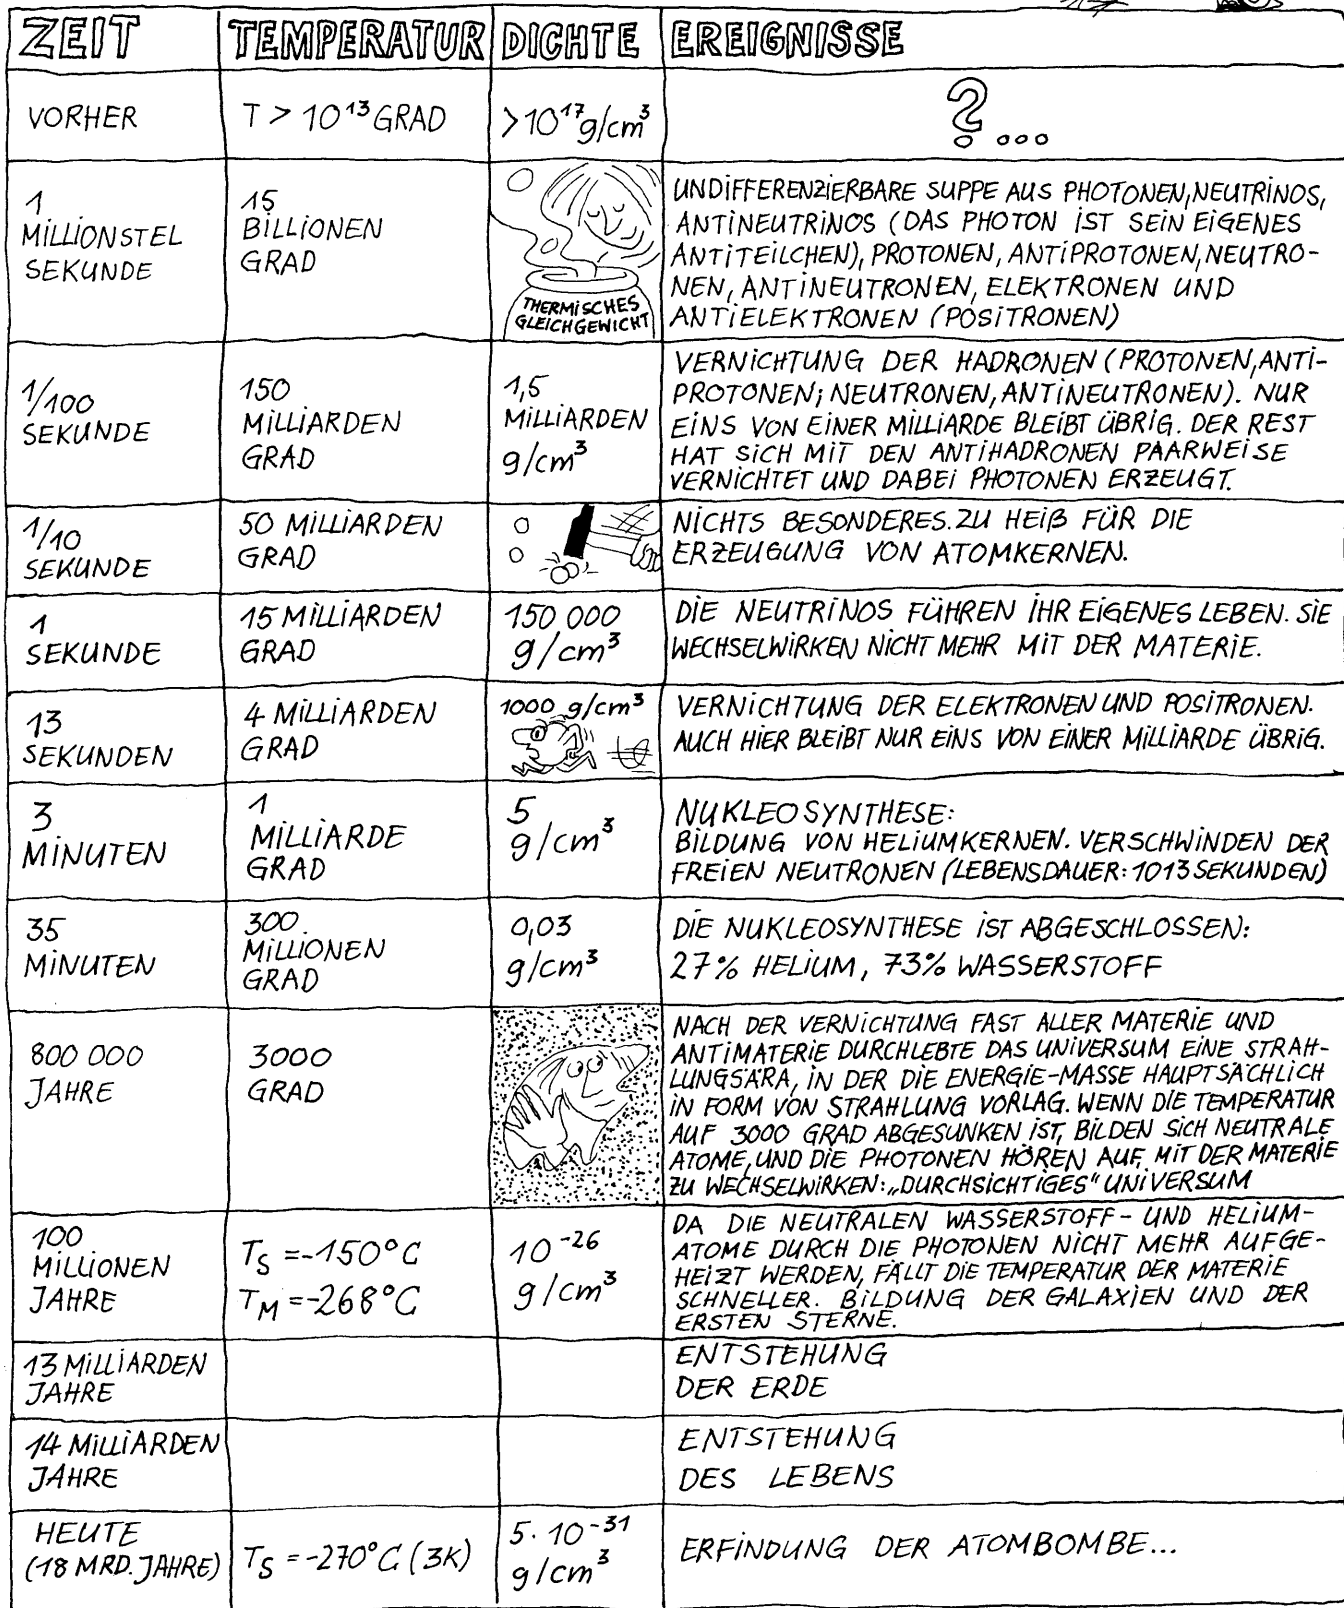 ZEIT TEMPERATUR DICHTE EREIGNISSE
VORHER
T > 10¹³ GRAD
>10¹⁷ g/cm³
? ...
1
MILLIONSTEL
SEKUNDE
15
BILLIONEN
GRAD
THERMISCHES
GLEICHGEWICHT
UNDIFFERENZIERBARE SUPPE AUS PHOTONEN, NEUTRINOS,
ANTINEUTRINOS (DAS PHOTON IST SEIN EIGENES
ANTITEILCHEN), PROTONEN, ANTIPROTONEN, NEUTRO-
NEN, ANTINEUTRONEN, ELEKTRONEN UND
ANTIELEKTRONEN (POSITRONEN)
1/100
SEKUNDE
150
MILLIARDEN
GRAD
1,5
MILLIARDEN
g/cm³
VERNICHTUNG DER HADRONEN (PROTONEN, ANTI-
PROTONEN; NEUTRONEN, ANTINEUTRONEN). NUR
EINS VON EINER MILLIARDE BLEIBT ÜBRIG. DER REST
HAT SICH MIT DEN ANTIHADRONEN PAARWEISE
VERNICHTET UND DABEI PHOTONEN ERZEUGT.
1/10
SEKUNDE
50 MILLIARDEN
GRAD
NICHTS BESONDERES. ZU HEIß FÜR DIE
ERZEUGUNG VON ATOMKERNEN.
1
SEKUNDE
15 MILLIARDEN
GRAD
150 000
g/cm³
DIE NEUTRINOS FÜHREN IHR EIGENES LEBEN. SIE
WECHSELWIRKEN NICHT MEHR MIT DER MATERIE.
13
SEKUNDEN
4 MILLIARDEN
GRAD
1000 g/cm³
VERNICHTUNG DER ELEKTRONEN UND POSITRONEN.
AUCH HIER BLEIBT NUR EINS VON EINER MILLIARDE ÜBRIG.
3
MINUTEN
1
MILLIARDE
GRAD
5
g/cm³
NUKLEOSYNTHESE:
BILDUNG VON HELIUMKERNEN. VERSCHWINDEN DER
FREIEN NEUTRONEN (LEBENSDAUER: 1013 SEKUNDEN)
35
MINUTEN
300.
MILLIONEN
GRAD
0,03
g/cm³
DIE NUKLEOSYNTHESE IST ABGESCHLOSSEN:
27% HELIUM, 73% WASSERSTOFF
800 000
JAHRE
3000
GRAD
NACH DER VERNICHTUNG FAST ALLER MATERIE UND
ANTIMATERIE DURCHLEBTE DAS UNIVERSUM EINE STRAH-
LUNGSÄRA, IN DER DIE ENERGIE-MASSE HAUPTSÄCHLICH
IN FORM VON STRAHLUNG VORLAG. WENN DIE TEMPERATUR
AUF 3000 GRAD ABGESUNKEN IST, BILDEN SICH NEUTRALE
ATOME, UND DIE PHOTONEN HÖREN AUF, MIT DER MATERIE
ZU WECHSELWIRKEN: „DURCHSICHTIGES" UNIVERSUM
100
MILLIONEN
JAHRE
T_S = -150°C
T_M = -268°C
10⁻²⁶
g/cm³
DA DIE NEUTRALEN WASSERSTOFF- UND HELIUM-
ATOME DURCH DIE PHOTONEN NICHT MEHR AUFGE-
HEIZT WERDEN, FÄLLT DIE TEMPERATUR DER MATERIE
SCHNELLER. BILDUNG DER GALAXIEN UND DER
ERSTEN STERNE.
13 MILLIARDEN
JAHRE
ENTSTEHUNG
DER ERDE
14 MILLIARDEN
JAHRE
ENTSTEHUNG
DES LEBENS
HEUTE
(18 MRD. JAHRE)
T_S = -270°C (3K)
5·10⁻³¹
g/cm³
ERFINDUNG DER ATOMBOMBE...